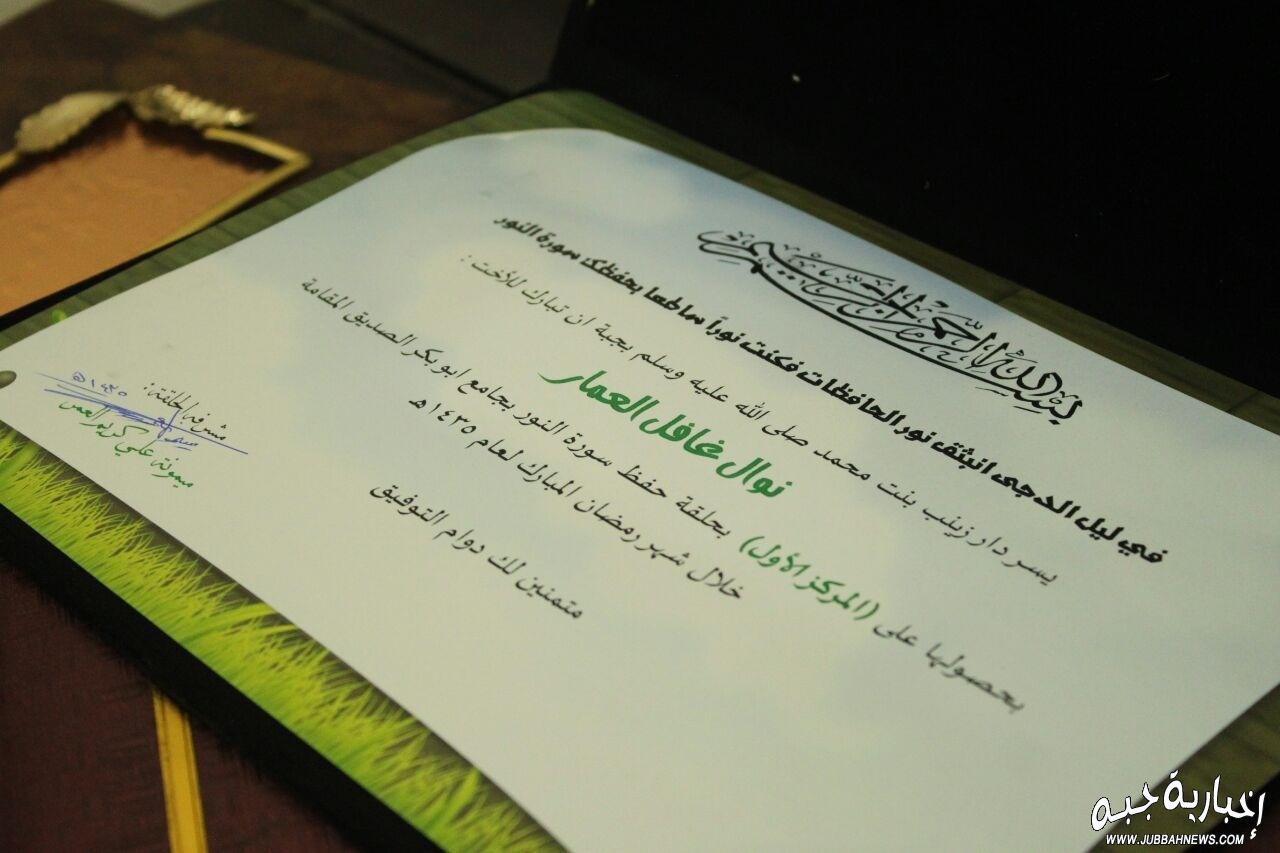 بسم الله الرحمن الرحيم
في ليل الدجى انبثق نور الحافظات فكنت نوراً ساطعا بحفظك سورة النور
يسر دار زينب بنت محمد صلى الله عليه وسلم بجبة ان تبارك للأخت :
نوال غافل العمار
بحصولها على (المركز الأول) بحلقة حفظ سورة النور بجامع ابو بكر الصديق المقامة
خلال شهر رمضان المبارك لعام ١٤٣٥ هـ
متمنين لك دوام التوفيق
مشرفة الحلقة :
ميمونه علي كريم
إخبارية جبه
WWW.JUBBAHNEWS.COM